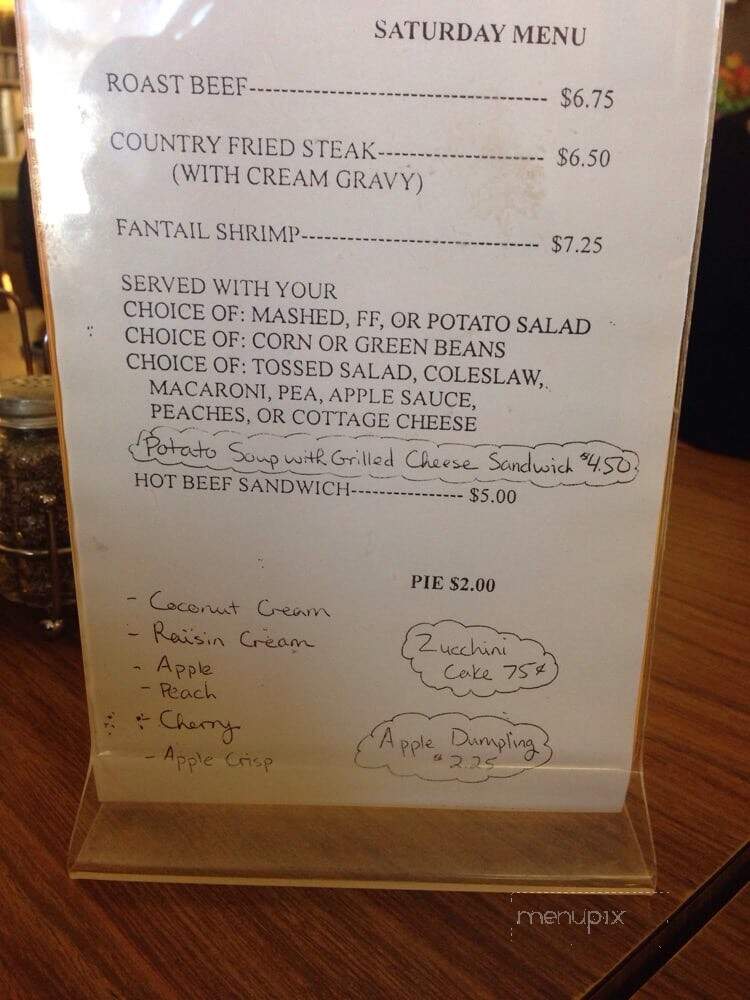 SATURDAY MENU
ROAST BEEF---------------------------------- $6.75
COUNTRY FRIED STEAK-------------------- $6.50
(WITH CREAM GRAVY)
FANTAIL SHRIMP----------------------------- $7.25
SERVED WITH YOUR
CHOICE OF: MASHED, FF, OR POTATO SALAD
CHOICE OF: CORN OR GREEN BEANS
CHOICE OF: TOSSED SALAD, COLESLAW,
MACARONI, PEA, APPLE SAUCE,
PEACHES, OR COTTAGE CHEESE
Potato Soup with Grilled Cheese Sandwich $4.50
HOT BEEF SANDWICH---------------- $5.00
PIE $2.00
- Coconut Cream
- Raisin Cream
- Apple
- Peach
- Cherry
- Apple Crisp
Zucchini
Cake 75¢
Apple Dumpling
$2.25
menupix